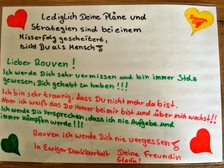 Lediglich Deine Pläne und
Strategien sind bei einem
Misserfolg gescheitert,
nicht Du als Mensch!
Lieber Rouven!
Ich werde Dich sehr vermissen und bin immer Stolz
gewesen, Dich gehabt zu haben!!!
Ich bin sehr traurig, dass Du nicht mehr da bist.
Aber ich weiß das Du immer bei mir bist und über mich wachst!!
Ich werde Dir versprechen, dass ich nie Aufgebe und
immer kämpfen werde!!!
Rouven ich werde Dich nie vergessen!
In Ewiger Dankbarkeit Deine Freundin